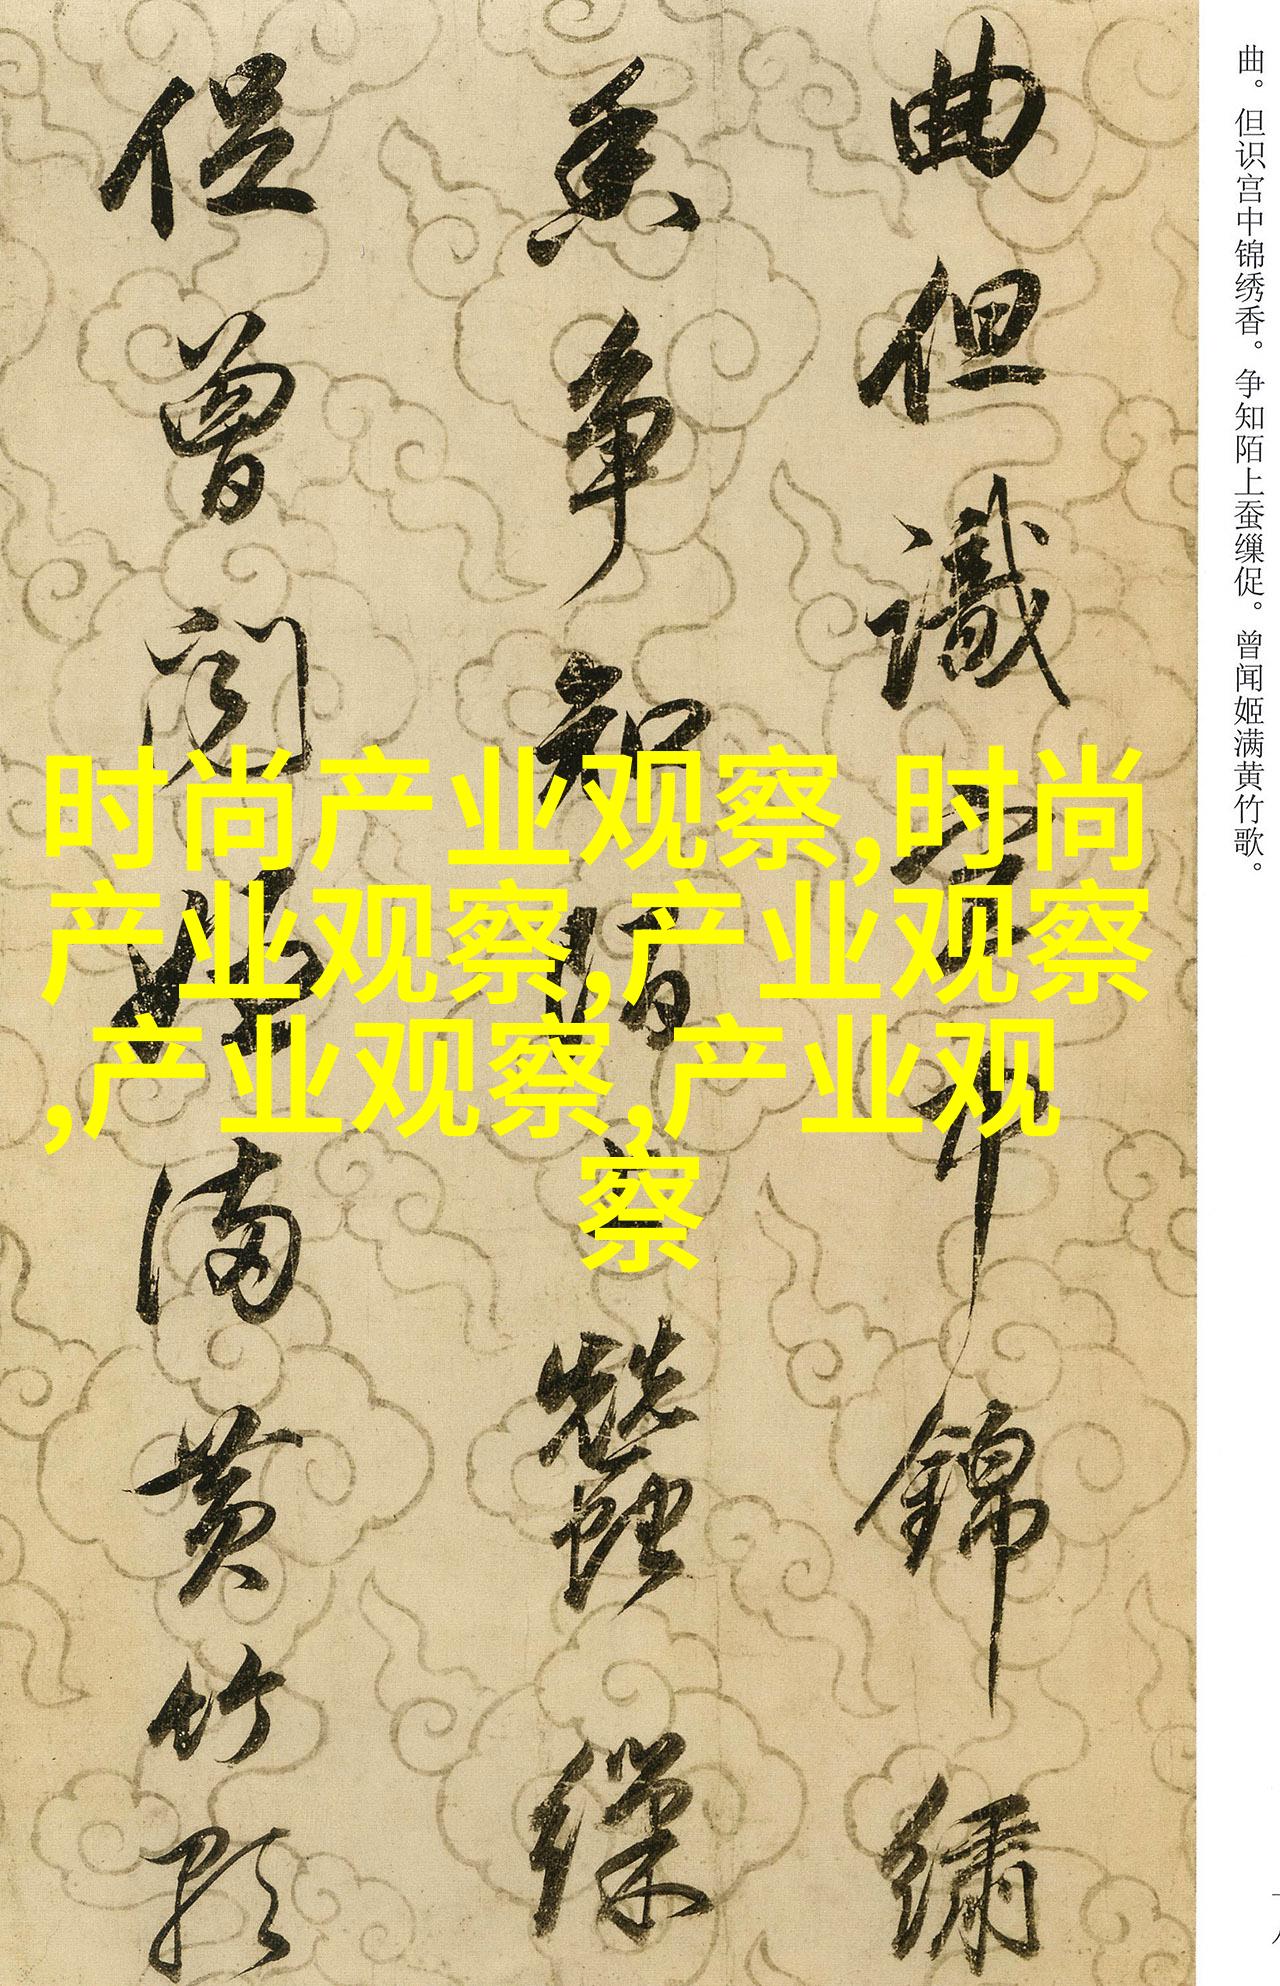 曲。但识宫中锦绣香。争知陌上蚕缫促。曾闻姬满黄竹歌。
曲但識宮中錦繡
香争知陌上蠶繅
促曾聞姬满黄竹歌
时尚产业观察,时尚
产业观察,产业观察
,产业观察,产业观
察